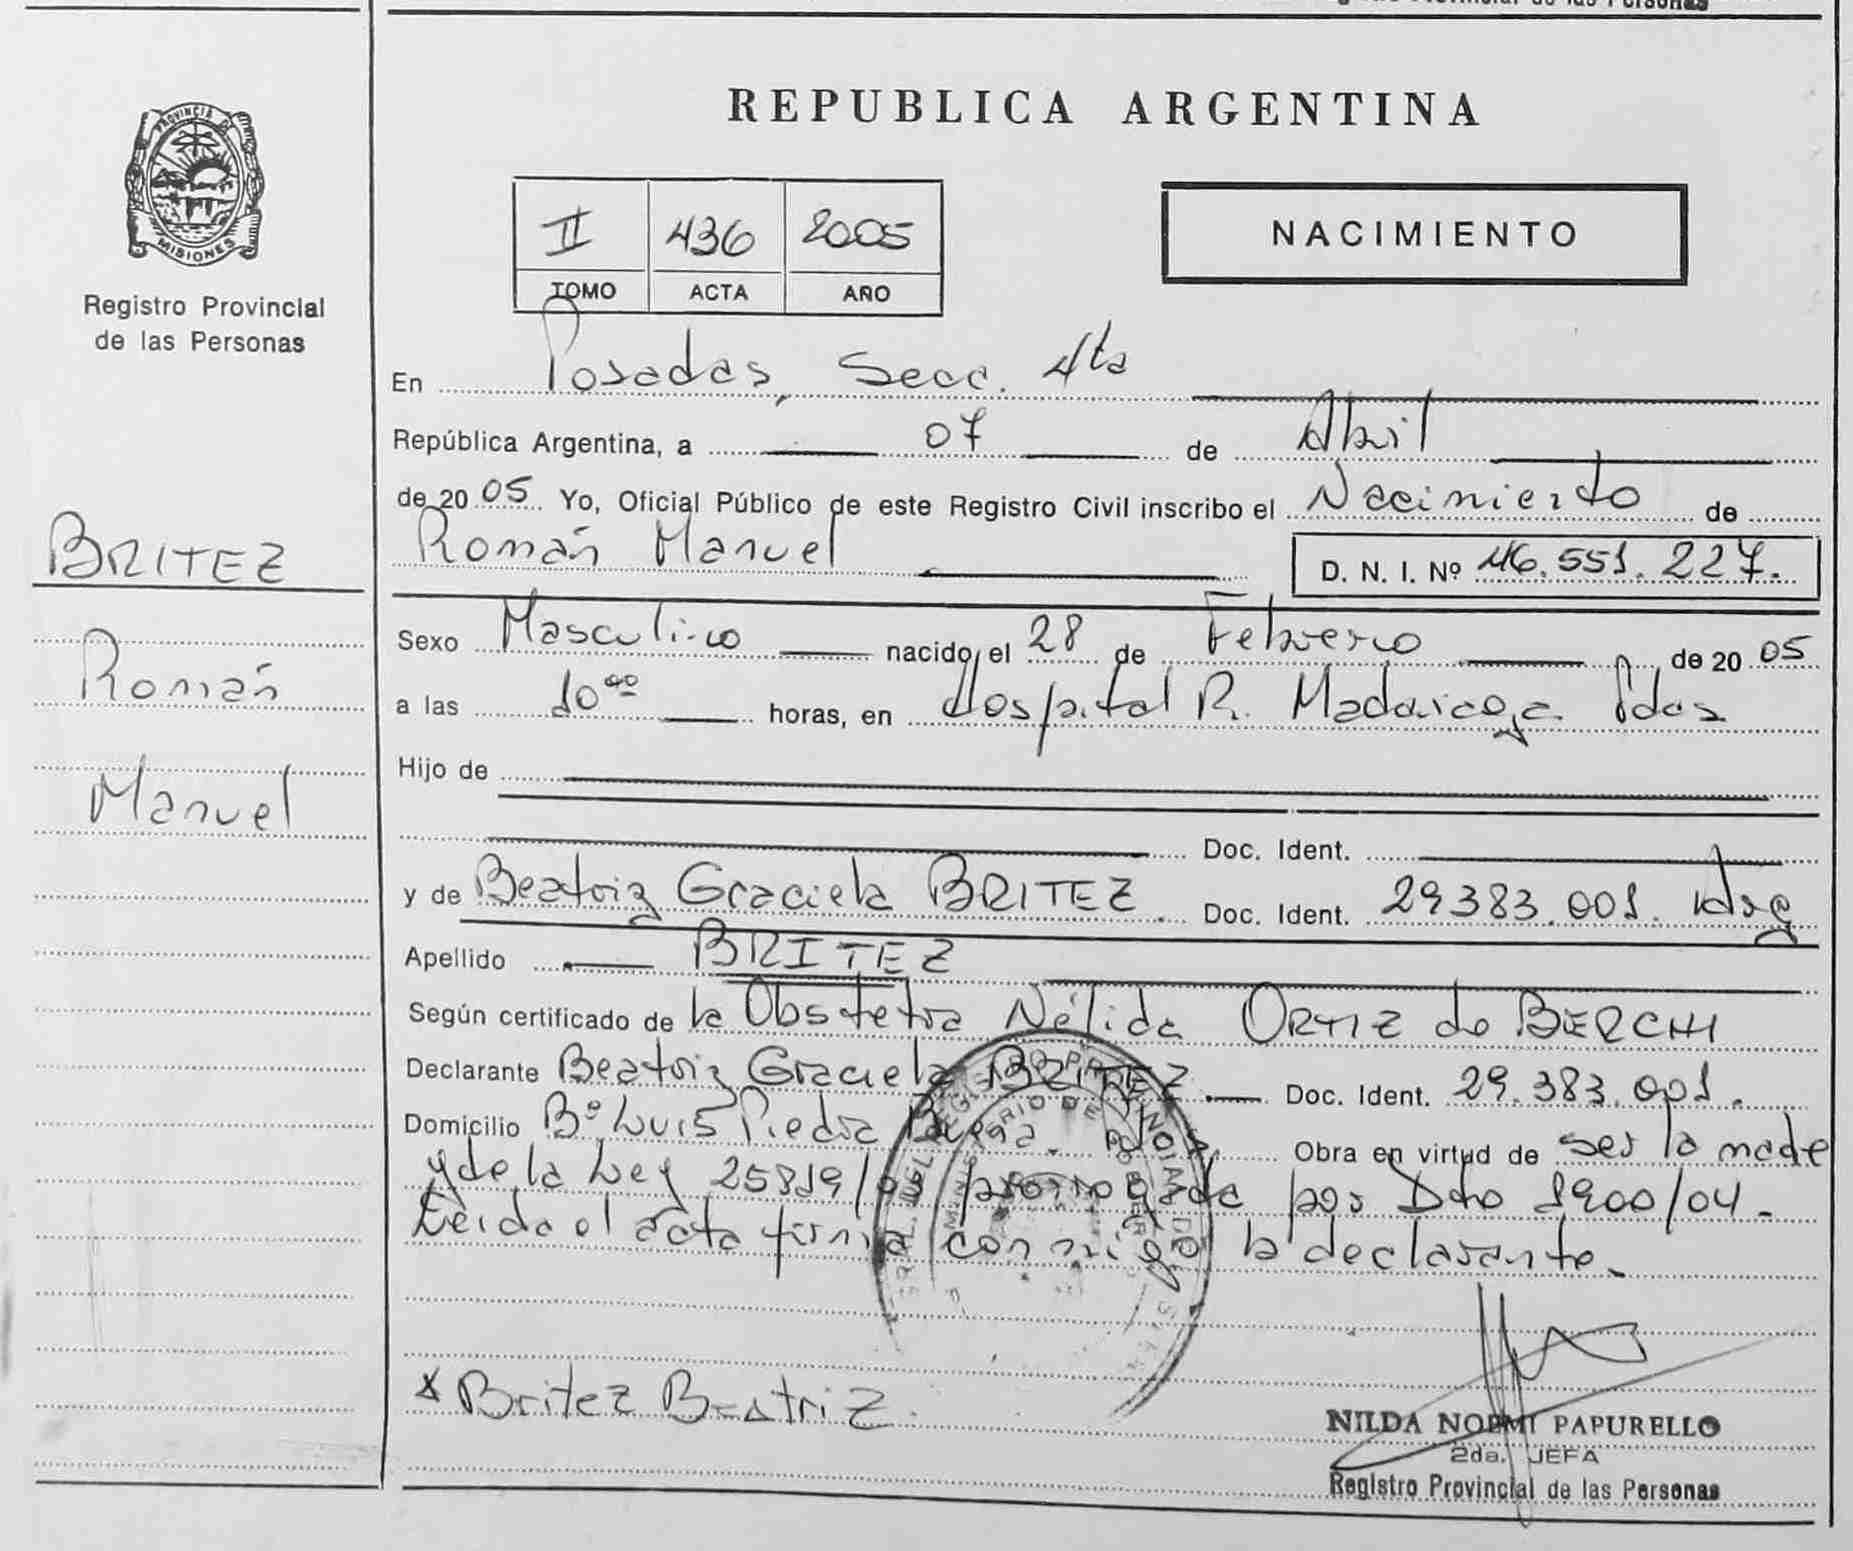 REPUBLICA ARGENTINA
PROVINCIA DE
MISIONES
Registro Provincial
de las Personas
II 436 2005
TOMO ACTA AÑO
NACIMIENTO
BRITEZ
Román
Manuel
En Posadas, Secc. 4ta
República Argentina, a 07 de Abril
de 2005 Yo, Oficial Público de este Registro Civil inscribo el Nacimiento de
Román Manuel D. N. I. Nº 46.551.227.
Sexo Masculino nacido el 28 de Febrero de 2005
a las 10⁰⁰ horas, en Hospital R. Madariaga Pdas
Hijo de
Doc. Ident.
y de Beatriz Graciela BRITEZ. Doc. Ident. 29383.001.
Apellido BRITEZ
Según certificado de la Obstetra Nélida ORTIZ de BERCHI
Declarante Beatriz Graciela BRITEZ Doc. Ident. 29.383.001.
Domicilio Bº Luis Piedra Buena Obra en virtud de ser la madre
y de la Ley 25819/03 prorrogada por Dto 1900/04.
Leida el acta firma conmigo la declarante.
x Britez Beatriz.
NILDA NOEMI PAPURELLO
2da. JEFA
Registro Provincial de las Personas